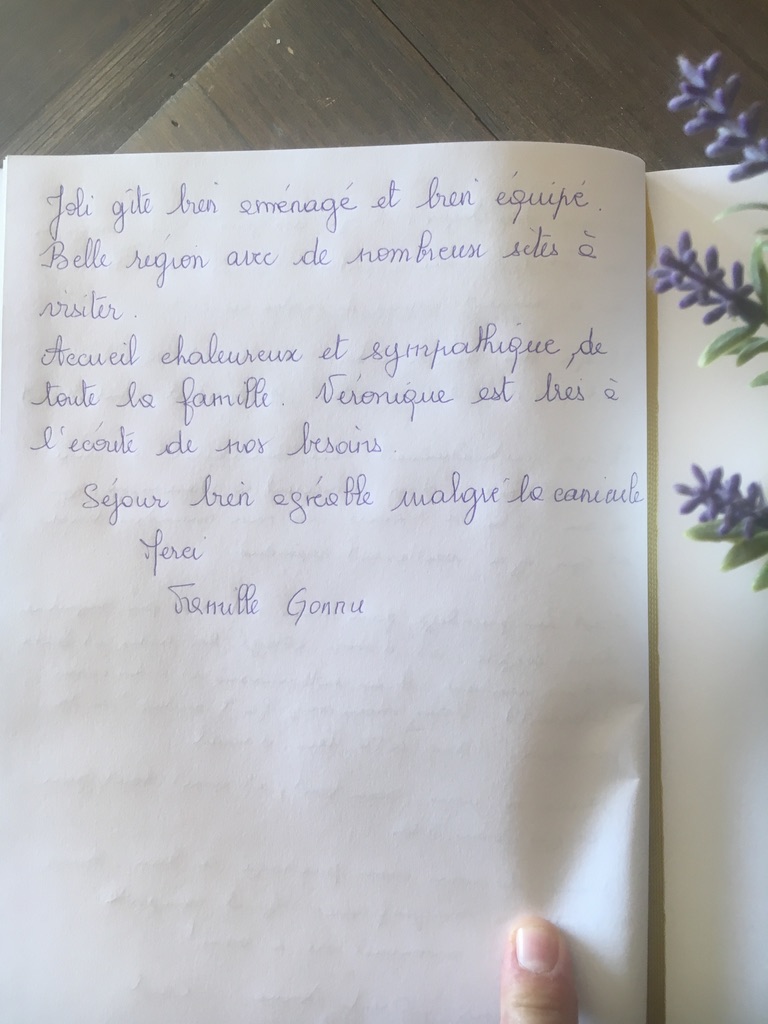 Joli gîte bien aménagé et bien équipé.
Belle région avec de nombreux sites à
visiter.
Accueil chaleureux et sympathique, de
toute la famille. Véronique est très à
l'écoute de nos besoins.
Séjour bien agréable malgré la canicule
Merci
Famille Gonnu